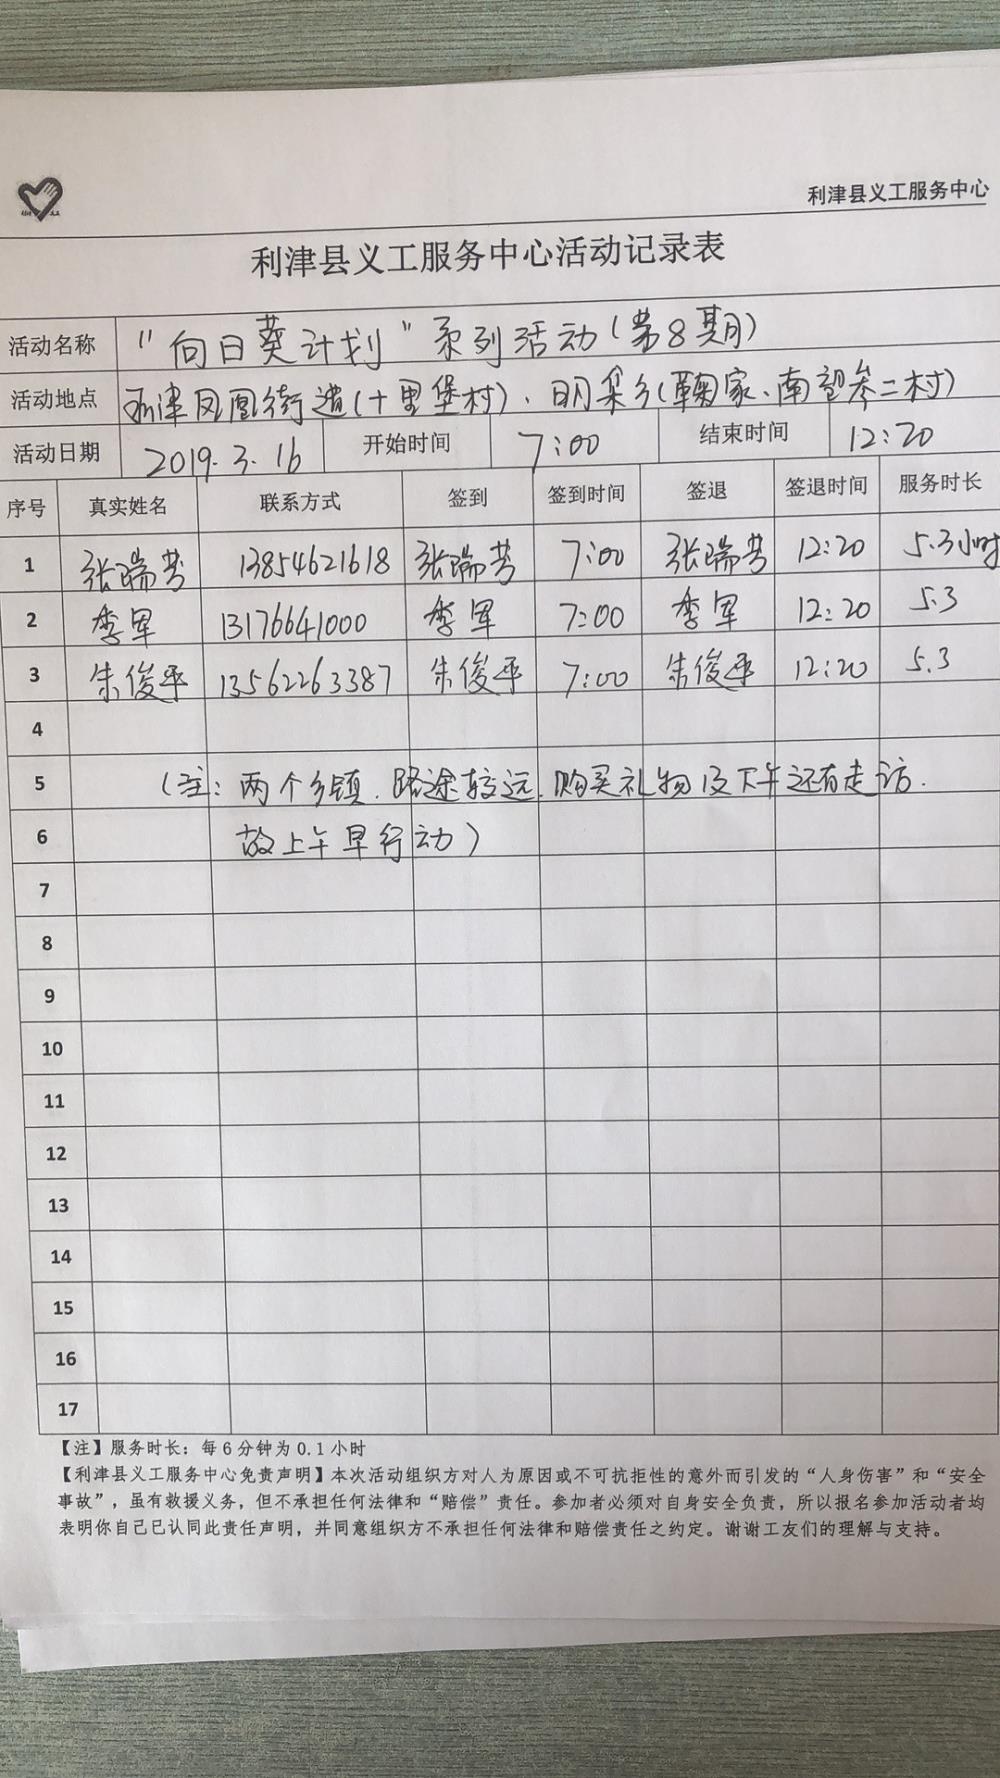 利津县义工服务中心
利津县义工服务中心活动记录表
活动名称 “向日葵计划”系列活动(第8期)
活动地点 利津凤凰街道(十里堡村)、明集乡(鞠家、南望参二村)
活动日期 2019.3.16 开始时间 7:00 结束时间 12:20
序号 真实姓名 联系方式 签到 签到时间 签退 签退时间 服务时长
1 张瑞芳 13854621618 张瑞芳 7:00 张瑞芳 12:20 5.3小时
2 李军 13176641000 李军 7:00 李军 12:20 5.3
3 朱俊平 13562263387 朱俊平 7:00 朱俊平 12:20 5.3
4
5 (注:两个乡镇.路途较远.购买礼物及下午还有走访.
6 故上午早行动)
7
8
9
10
11
12
13
14
15
16
17
【注】服务时长：每6分钟为0.1小时
【利津县义工服务中心免责声明】本次活动组织方对人为原因或不可抗拒性的意外而引发的“人身伤害”和“安全
事故”，虽有救援义务，但不承担任何法律和“赔偿”责任。参加者必须对自身安全负责，所以报名参加活动者均
表明你自己已认同此责任声明，并同意组织方不承担任何法律和赔偿责任之约定。谢谢工友们的理解与支持。